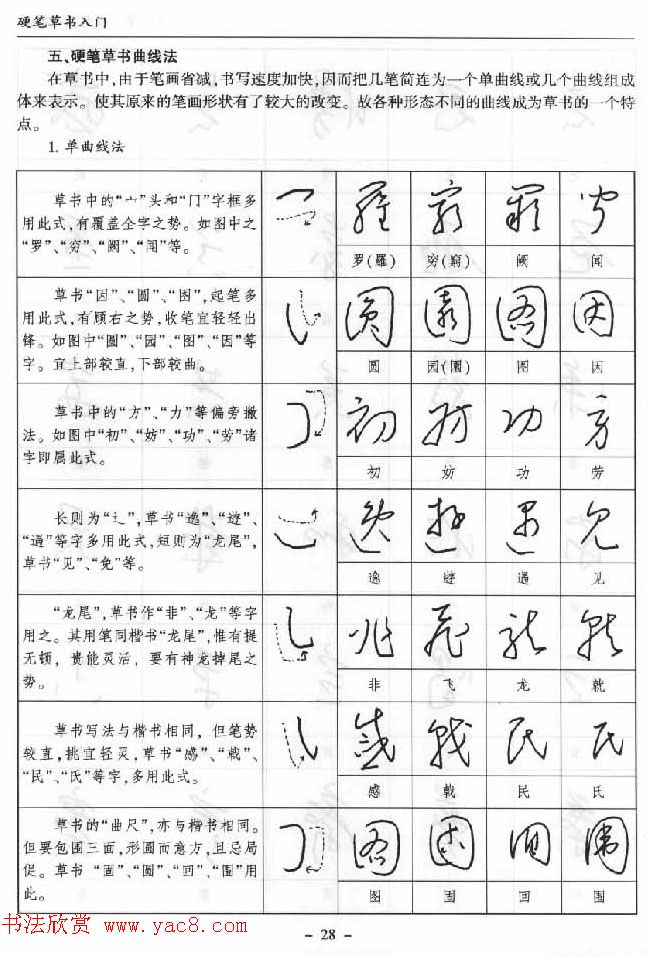 硬笔草书入门
五、硬笔草书曲线法
在草书中,由于笔画省减,书写速度加快,因而把几笔简连为一个单曲线或几个曲线组成
体来表示。使其原来的笔画形状有了较大的改变。故各种形态不同的曲线成为草书的一个特
点。
1. 单曲线法
草书中的“亠”头和“门”字框多
用此式,有覆盖全字之势。如图中之
“罗”、“穷”、“阙”、“闻”等。
罗(羅) 穷(窮) 阙 闻
草书“因”、“圆”、“图”,起笔多
用此式,有顾右之势,收笔宜轻轻出
锋。如图中“圆”、“园”、“图”、“因”等
字。宜上部较直,下部较曲。
圆 园(園) 图 因
草书中的“方”、“力”等偏旁撇
法。如图中“初”、“妨”、“功”、“劳”诸
字即属此式。
初 妨 功 劳
长则为“辶”,草书“逸”、“游”、
“遇”等字多用此式,短则为“龙尾”,
草书“见”、“免”等。
逸 遇 见
“龙尾”,草书作“非”、“龙”等字
用之。其用笔同楷书“龙尾”,惟有提
无顿,贵能灵活,要有神龙掉尾之
势。
非 飞 龙 就
草书写法与楷书相同,但笔势
较直,挑宜轻灵,草书“感”、“戟”、
“民”、“氏”等字,多用此式。
感 戟 民 氏
草书的“曲尺”,亦与楷书相同。
但要包围三面,形圆而意方,且忌局
促。草书“固”、“圆”、“回”、“围”用
此。
图 固 回 围
书法欣赏 www.yac8.com
- 28 -